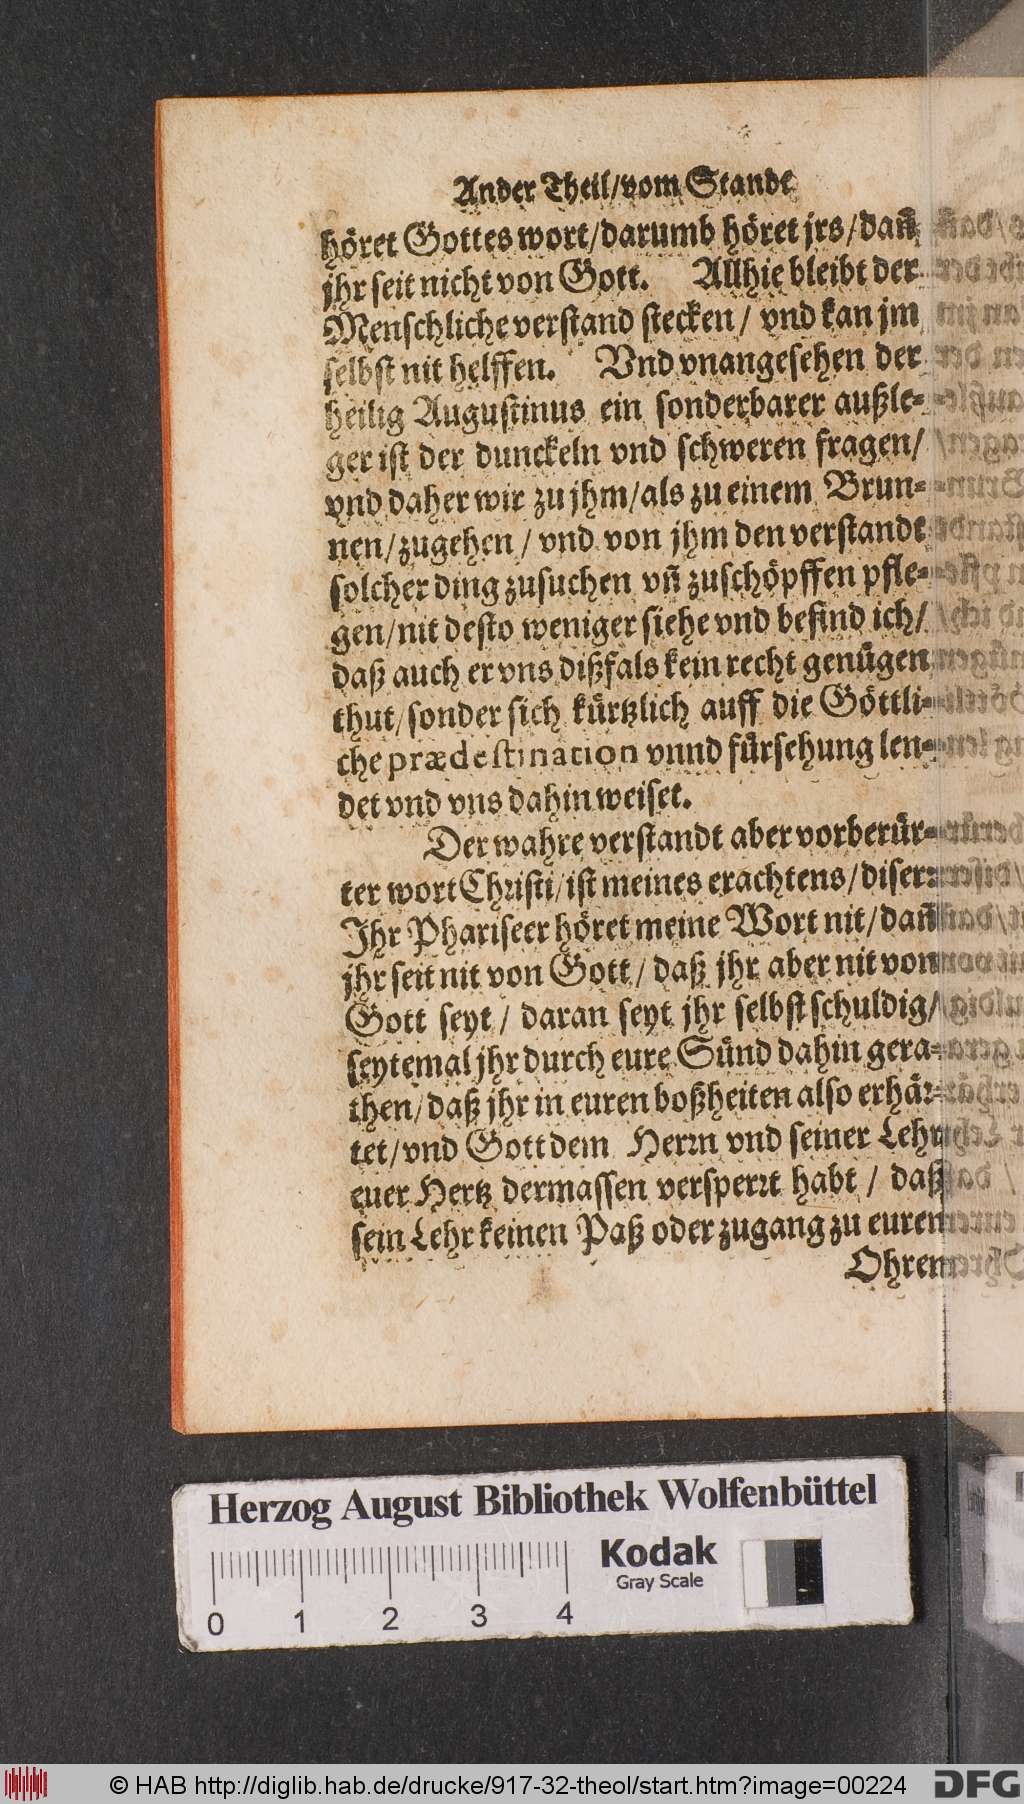 Ander Theil/vom Stande
höret Gottes wort/darumb höret jrs/dañ
jhr seit nicht von Gott. Allhie bleibt der
Menschliche verstand stecken/ vnd kan jm
selbst nit helffen. Vnd vnangesehen der
heilig Augustinus ein sonderbarer außle-
ger ist der dunckeln vnd schweren fragen/
vnd daher wir zu jhm/als zu einem Brun-
nen/zugehen/ vnd von jhm den verstandt
solcher ding zusuchen vñ zuschöpffen pfle-
gen/nit desto weniger siehe vnd befind ich/
daß auch er vns dißfals kein recht genügen
thut/sonder sich kürtzlich auff die Göttli-
che prædestination vnnd fürsehung len-
det vnd vns dahin weiset.
Der wahre verstandt aber vorberür-
ter wort Christi/ist meines erachtens/diser:
Ihr Phariseer höret meine Wort nit/dañ
jhr seit nit von Gott/ daß jhr aber nit von
Gott seyt/ daran seyt jhr selbst schuldig/
seytemal jhr durch eure Sünd dahin gera-
then/daß jhr in euren boßheiten also erhär-
tet/vnd Gott dem Herrn vnd seiner Lehr
euer Hertz dermassen versperrt habt/ daß
sein Lehr keinen Paß oder zugang zu euren
Ohren
Herzog August Bibliothek Wolfenbüttel
Kodak
Gray Scale
0 1 2 3 4
© HAB http://diglib.hab.de/drucke/917-32-theol/start.htm?image=00224
DFG